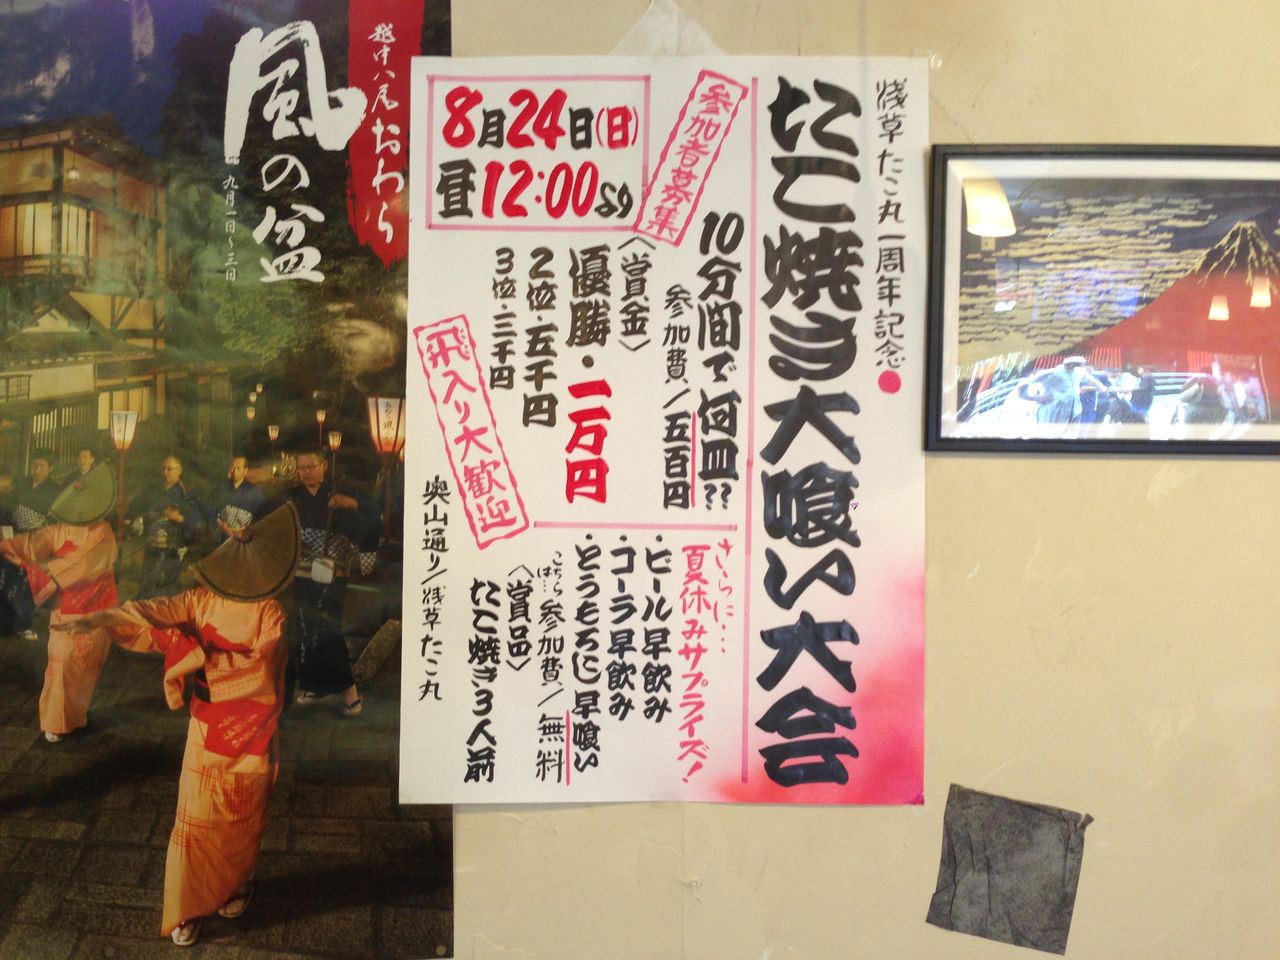 越中八尾おわら
風の盆
九月一日～三日
浅草たこ丸一周年記念
たこ焼き大喰い大会
参加者募集
8月24日(日)
昼12:00より
10分間で何皿??
参加費/五百円
〈賞金〉
優勝・二万円
2位・五千円
3位・三千円
飛入り大歓迎
さらに…
夏休みサプライズ!
・ビール早飲み
・コーラ早飲み
・とうもろこし早喰い
こちらは…参加費/無料
〈賞品〉
たこ焼き3人前
奥山通り/浅草たこ丸